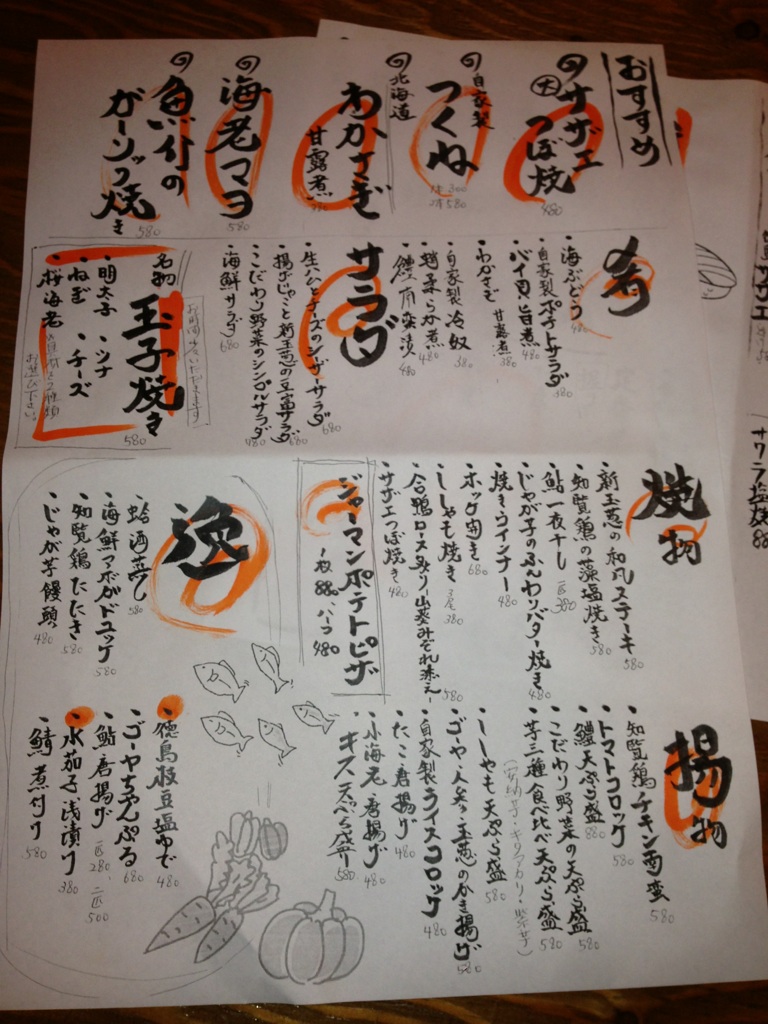 おすすめ
大
サザエ
つぼ焼
480
自家製
つくね
580
北海道
わかさぎ
甘露煮
海老マヨ
580
魚介の
ガーリック焼き
580
肴
海ぶどう 480
自家製ポテトサラダ 380
バイ貝旨煮 480
わかさぎ 甘露煮 380
自家製冷奴 380
蛸柔らか煮 480
480
サラダ
生ハムとチーズのシーザーサラダ 680
揚げじゃこと新玉葱の豆富サラダ 680
こだわり野菜のシンプルサラダ 480
海鮮サラダ 680
お時間いただきます
名物
玉子焼き
580
明太子
ツナ
ねぎ
チーズ
桜海老
お選び下さい
焼物
新玉葱の和風ステーキ 580
知覧鶏の藻塩焼き 580
鮎一夜干し 一匹 380
じゃが芋のふんわりバター焼き 480
焼きウインナー 480
ホッケ開き 680
ししゃも焼き 3尾 380
合鴨ロース炙り〜山葵みぞれ添え〜 580
サザエつぼ焼き 480
ジャーマンポテトピザ
一枚 880 ハーフ 480
逸
蛤酒蒸し 580
海鮮アボガドユッケ 580
知覧鶏たたき 580
じゃが芋饅頭 480
揚物
知覧鶏チキン南蛮 580
トマトコロッケ 580
鱧天ぷら盛 880
こだわり野菜の天ぷら盛 580
芋三種食べ比べ天ぷら盛 580
(安納芋・キタアカリ・紫芋)
ししゃも天ぷら盛 580
ゴーヤ・人参・玉葱のかき揚げ 580
自家製ライスコロッケ 480
たこ唐揚げ 480
小海老唐揚げ 480
キス天ぷら盛り 580
徳島枝豆塩ゆで 480
ゴーヤちゃんぷる 680
鮎唐揚げ 一匹 280、二匹 500
水茄子浅漬け 380
鯖煮付け 580